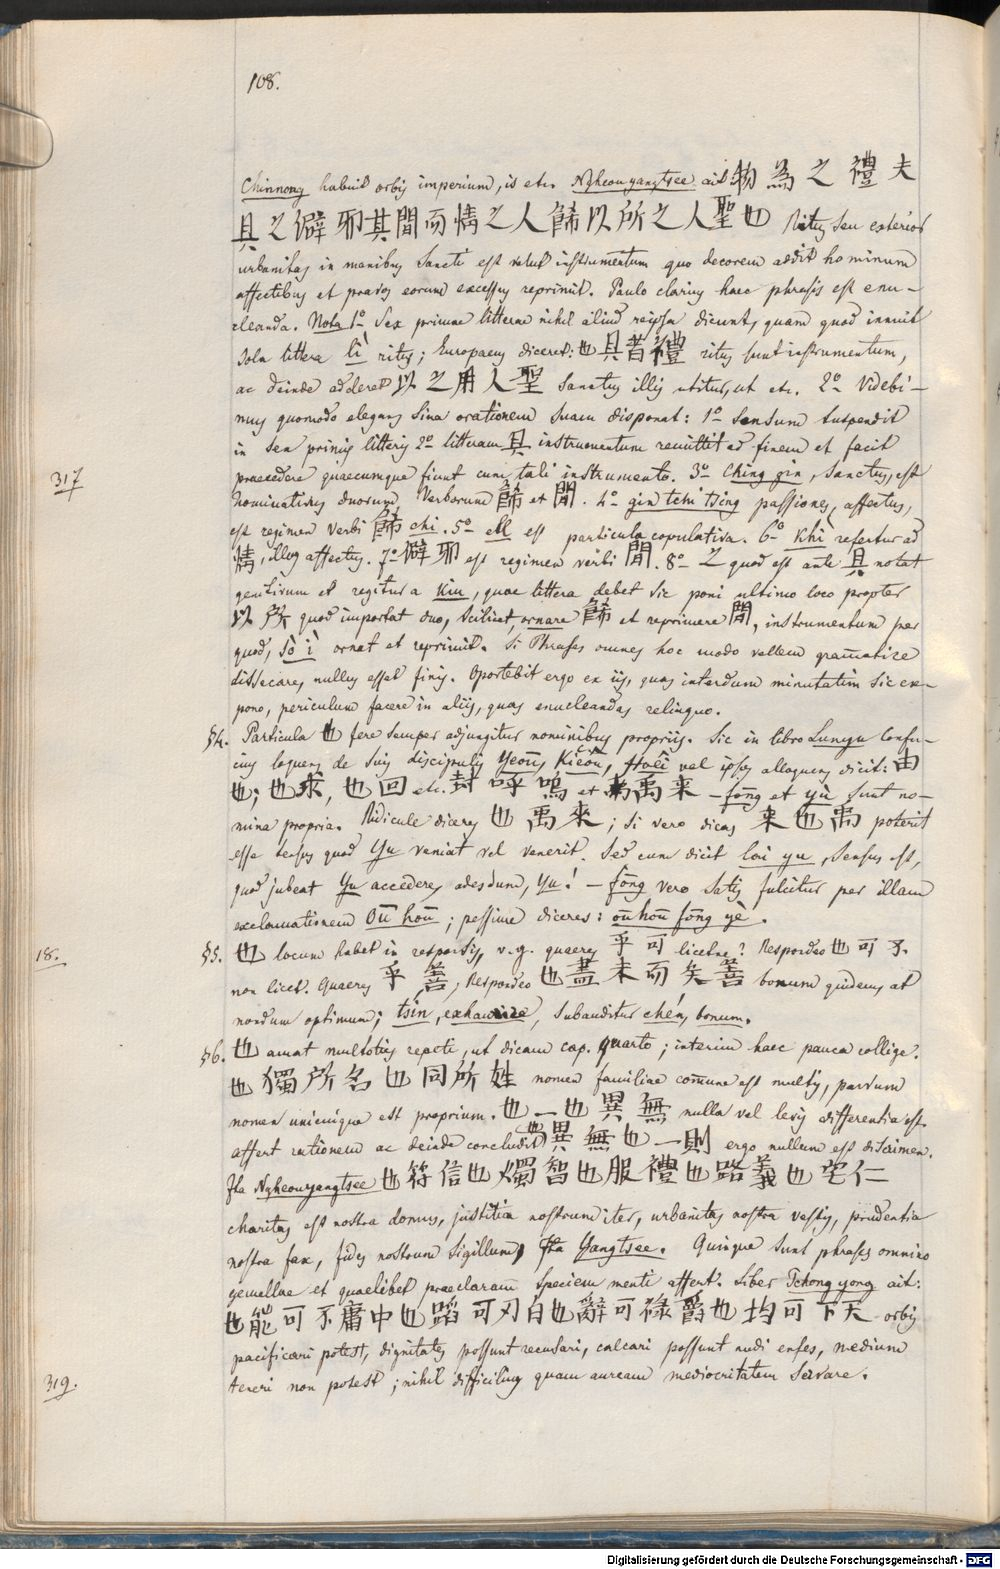 108.
Chinnong habuit orbis imperium, is etc. Ngheouyangtsee ait 物 為 之 禮 夫
具之僻邪其閒而情之人餙以所之人聖也 Ritus seu exterior
urbanitas in manibus sancti est velut instrumentum quo decorem addit hominum
affectibus et pravos eorum excessus reprimit. Paulo clarius haec phrasis est enu-
cleanda. Nota 1º Sex primae litterae nihil aliud reipsa dicunt, quam quod innuit
sola littera lì ritus; Europaeus diceret: 也具者禮 ritus sunt instrumentum,
ac deinde adderet 以之用人聖 Sanctus illis utitur, ut etc. 2º Videbi-
mus quomodo elegans Sina orationem suam disponat: 1º sensum suspendit
in sex primis litteris 2º litteram 具 instrumentum remittit ad finem et facit
praecedere quaecumque fiunt cum tali instrumento. 3º Ching gin, Sanctus, est
317
Nominativus duorum Verborum 餙 et 閒. 4º gin tchi tsing passiones, affectus,
est regimen verbi 餙 chi. 5º ell est particula copulativa. 6º Khî refertur ad
情, illos affectus. 7º 僻邪 est regimen verbi 閒. 8º 之 quod est ante 具 notat
genitivum et regitur a kiu, quae littera debet sic poni ultimo loco propter
以所 quod importat duo, scilicet, ornare 餙 et reprimere 閒, instrumentum per
quod, sò ì ornat et reprimit. Si Phrases omnes hoc modo vellem gramatice
dissecare, nullus esset finis. Oportebit ergo ex iis, quas interdum minutatim sic ex-
pono, periculum facere in aliis, quas enucleandas relinquo.
§4. Particula 也 fere semper adjungitur nominibus propriis. Sic in libro Lunyu Confu-
cius loquens de suis discipulis Yeoū, Kieôu, Hoêi vel ipsos alloquens dicit: 由
也; 也求, 也回 etc. 封呼嗚 et 禹來 – fōng et yù sunt no-
mina propria. Ridicule diceres 也禹來; si vero dicas 来也禹 poterit
esse sensus quod Yu veniat vel venerit. Sed cum dicit lai yu, sensus est,
quod jubeat Yu accedere, adesdum, Yu! – fōng vero satis fulcitur per illam
exclamationem Oū hoū; pessime diceres: oū hoū fōng yè.
18.
§5. 也 locum habet in responsis, v.g. quaeres 乎可 licetne? Respondeo 也可不
non licet. Quaeres 乎善; Respondeo 也盡未而矣善 bonum quidem, at
nondum optimum; tsín, exhaurire, subauditur chén, bonum.
§6. 也 amat multoties repeti, ut dicam cap. quarto; interim haec pauca collige.
也獨所名也同所姓 nomen familiae comune est multis, parvum
nomen unicuique est proprium. 也一也異無 nulla vel levis differentia est.
affert rationem ac deinde concludit 也異無也一則 ergo nullum est discrimen.
Ita Ngheouyangtsee 也符信也燭智也服禮也路義也宅仁
charitas est nostra domus, justitia nostrum iter, urbanitas nostra vestis, prudentia
nostra fax, fides nostrum sigillum, Ita Yangtsee. Quinque sunt phrases omnino
gemellae et quaelibet praeclaram speciem menti affert. Liber Tchong yong ait:
也能可不庸中也蹈可刃白也辭可祿爵也均可下天 orbis
pacificari potest, dignitates possunt recusari, calcari possunt nudi enses, medium
319.
teneri non potest; nihil difficilius quam auream mediocritatem servare.
Digitalisierung gefördert durch die Deutsche Forschungsgemeinschaft - DFG